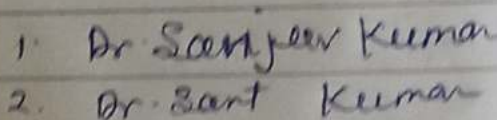 1. Dr. Sanjeev Kumar
2. Dr. Sant Kumar